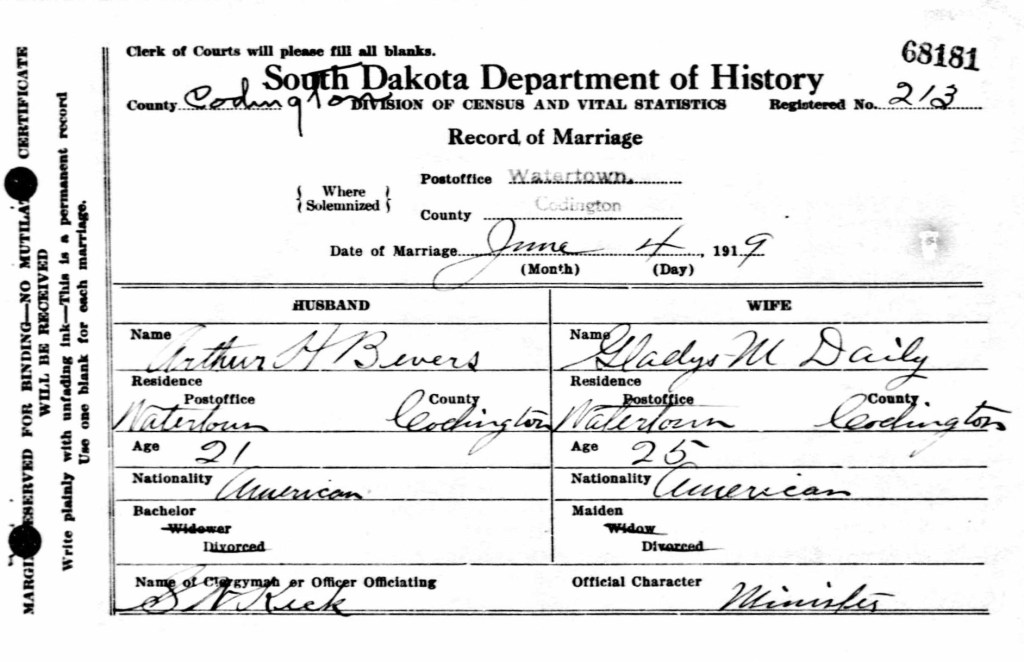 Clerk of Courts will please fill all blanks.
68181
South Dakota Department of History
County Codington DIVISION OF CENSUS AND VITAL STATISTICS Registered No. 213
Record of Marriage
Where Solemnized
Postoffice Watertown.
County Codington
Date of Marriage June 4, 1919
(Month) (Day)
HUSBAND WIFE
Name Arthur H Bevers Name Gladys M Daily
Residence Residence
Postoffice County Postoffice County
Watertown Codington Watertown Codington
Age 21 Age 25
Nationality American Nationality American
Bachelor Maiden
Widower Widow
Divorced Divorced
Name of Clergyman or Officer Officiating Official Character
S W Keck Minister
MARGIN RESERVED FOR BINDING—NO MUTILATED CERTIFICATE
WILL BE RECEIVED
Write plainly with unfading ink—This is a permanent record
Use one blank for each marriage.